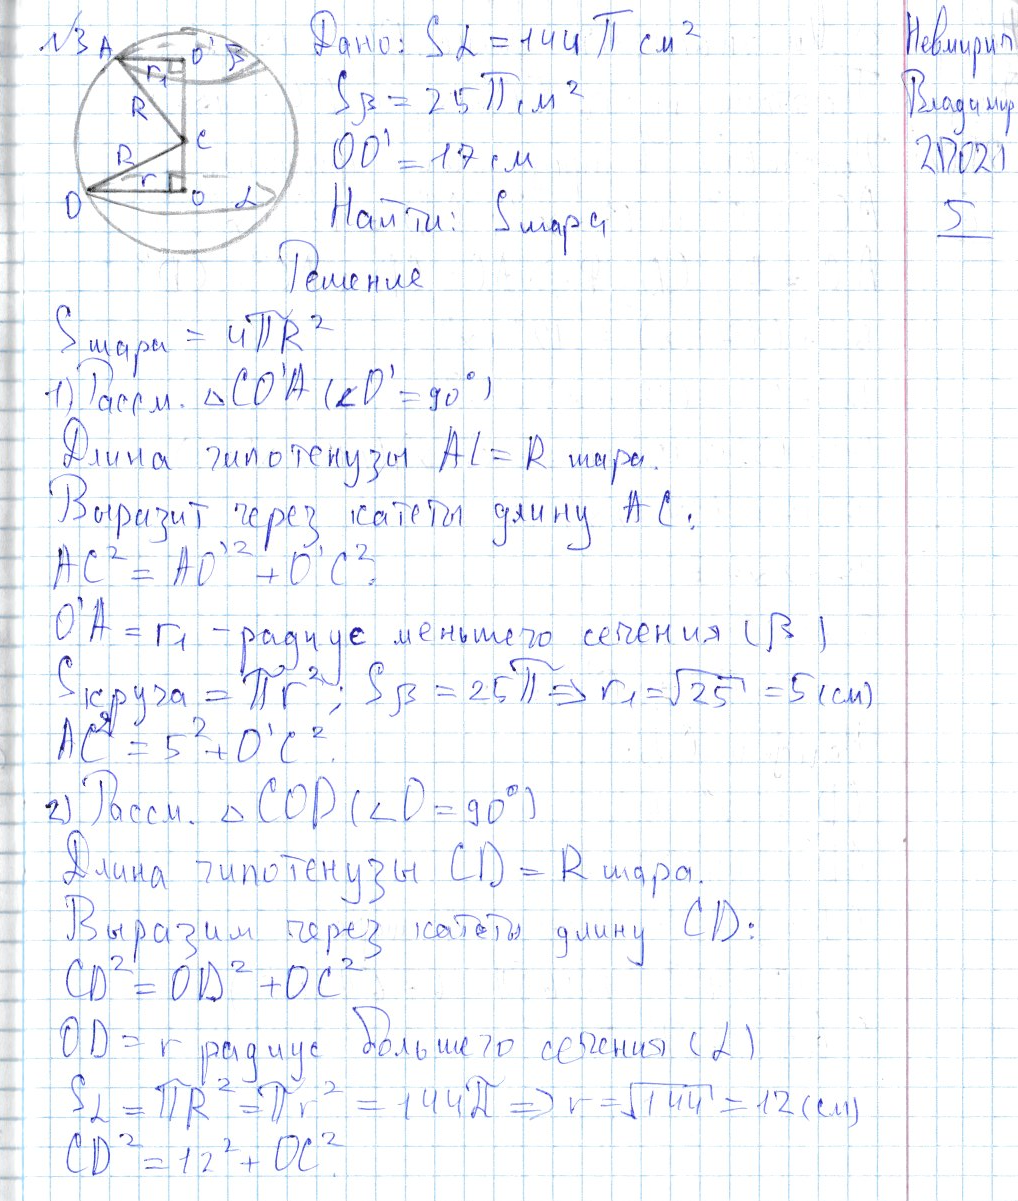 №3 Дано: Sα = 144π см²
Sβ = 25π см²
OO' = 17 см
Найти: Sшара
A O' β
r₁
R
C
R
r
D O α
Владимир
5
Решение
Sшара = 4πR²
1) Рассм. △CO'A (∠O' = 90°)
Длина гипотенузы AC = R шара.
Выразит через катеты длину AC:
AC² = AO'² + O'C².
O'A = r₁ – радиус меньшего сечения (β)
Sкруга = πr²; Sβ = 25π => r₁ = √25 = 5 (см)
AC² = 5² + O'C².
2) Рассм. △COD (∠O = 90°)
Длина гипотенузы CD = R шара.
Выразим через катеты длину CD:
CD² = OD² + OC²
OD = r радиус большего сечения (α)
Sα = πR² = πr² = 144π => r = √144 = 12 (см)
CD² = 12² + OC².